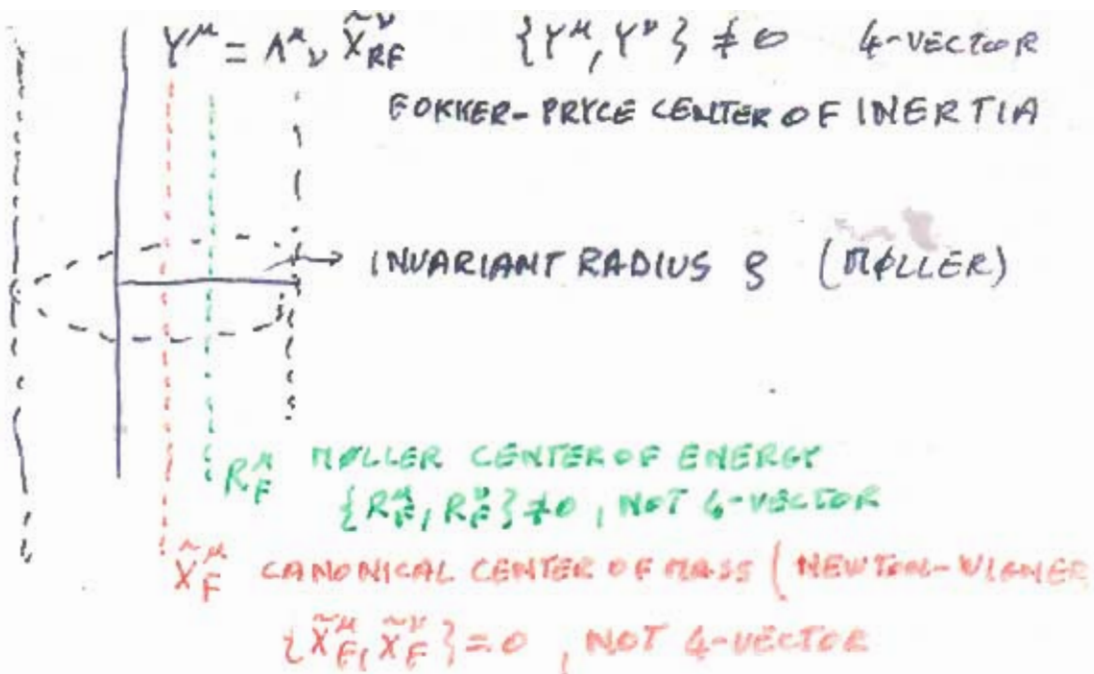 Y^μ = Λ^μ_ν X̃^ν_RF {Y^μ, Y^ν} ≠ 0 4-VECTOR
FOKKER-PRYCE CENTER OF INERTIA
INVARIANT RADIUS ρ (MØLLER)
R^μ_F MØLLER CENTER OF ENERGY
{R^μ_F, R^ν_F} ≠ 0, NOT 4-VECTOR
X̃^μ_F CANONICAL CENTER OF MASS (NEWTON-WIGNER
{X̃^μ_F, X̃^ν_F} = 0, NOT 4-VECTOR